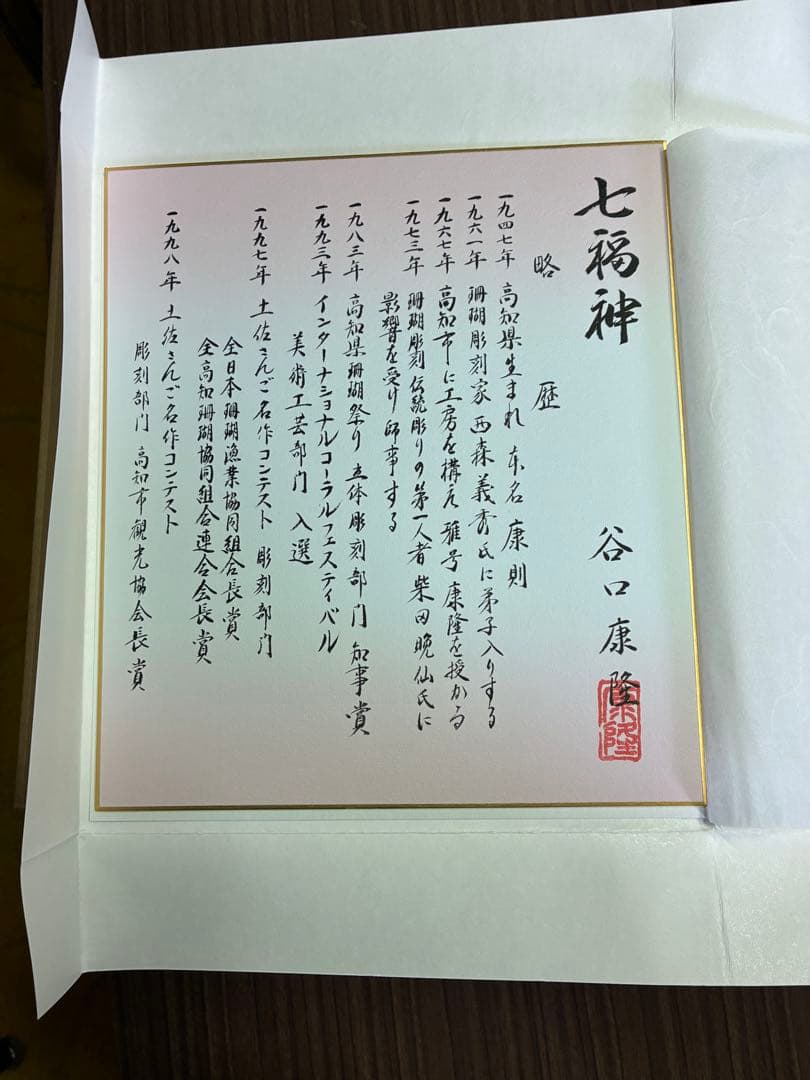 七福神
谷口康隆
康隆
略歴
一九四七年 高知県生まれ 本名 康則
一九六一年 珊瑚彫刻家 西森義秀氏に弟子入りする
一九六七年 高知市に工房を構え 雅号 康隆を授かる
一九七三年 珊瑚彫刻伝統彫りの第一人者 柴田晩仙氏に
影響を受け師事する
一九八三年 高知県珊瑚祭り 立体彫刻部門 知事賞
一九九三年 インターナショナルコーラルフェスティバル
美術工芸部門 入選
一九九七年 土佐さんご名作コンテスト 彫刻部門
全日本珊瑚漁業協同組合長賞
全高知珊瑚協同組合連合会長賞
一九九八年 土佐さんご名作コンテスト
彫刻部門 高知市観光協会長賞